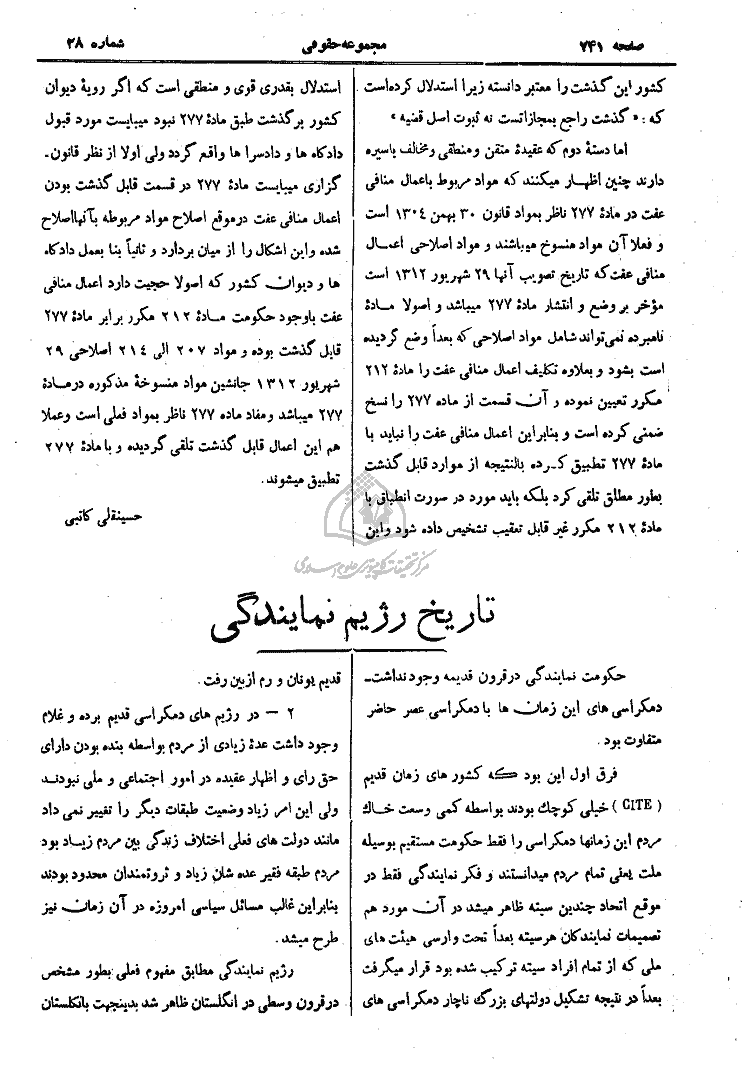 صفحه ۷۴۱
مجموعه حقوقی
شماره ۲۸
کشور این گذشت را معتبر دانسته زیرا استدلال کرده‌است
که : « گذشت راجع بمجازاتست نه ثبوت اصل قضیه »
اما دستهٔ دوم که عقیدهٔ متقن و منطقی و مخالف باسیره
دارند چنین اظهار میکنند که مواد مربوط باعمال منافی
عفت در مادهٔ ۲۷۷ ناظر بمواد قانون ۳۰ بهمن ۱۳۰۴ است
و فعلا آن مواد منسوخ میباشند و مواد اصلاحی اعمال
منافی عفت که تاریخ تصویب آنها ۲۹ شهریور ۱۳۱۲ است
مؤخر بر وضع و انتشار مادهٔ ۲۷۷ میباشد و اصولا مادهٔ
نامبرده نمی‌تواند شامل مواد اصلاحی که بعداً وضع گردیده
است بشود و بعلاوه تکلیف اعمال منافی عفت را مادهٔ ۲۱۲
مکرر تعیین نموده و آن قسمت از ماده ۲۷۷ را نسخ
ضمنی کرده است و بنابراین اعمال منافی عفت را نباید با
مادهٔ ۲۷۷ تطبیق کرده بالنتیجه از موارد قابل گذشت
بطور مطلق تلقی کرد بلکه باید مورد در صورت انطباق با
مادهٔ ۲۱۲ مکرر غیر قابل تعقیب تشخیص داده شود و این
استدلال بقدری قوی و منطقی است که اگر رویهٔ دیوان
کشور برگذشت طبق مادهٔ ۲۷۷ نبود میبایست مورد قبول
دادگاه ها و دادسرا ها واقع گردد ولی اولا از نظر قانون-
گزاری میبایست مادهٔ ۲۷۷ در قسمت قابل گذشت بودن
اعمال منافی عفت درموقع اصلاح مواد مربوطه بآنهااصلاح
شده واین اشکال را از میان بردارد و ثانیاً بنا بعمل دادگاه
ها و دیوان کشور که اصولا حجیت دارد اعمال منافی
عفت باوجود حکومت مادهٔ ۲۱۲ مکرر برابر مادهٔ ۲۷۷
قابل گذشت بوده و مواد ۲۰۷ الی ۲۱۴ اصلاحی ۲۹
شهریور ۱۳۱۲ جانشین مواد منسوخهٔ مذکوره درمادهٔ
۲۷۷ میباشد ومفاد ماده ۲۷۷ ناظر بمواد فعلی است وعملا
هم این اعمال قابل گذشت تلقی گردیده و با مادهٔ ۲۷۷
تطبیق میشوند.
حسینقلی کاتبی
مرکز تحقیقات کامپیوتری علوم اسلامی
تاریخ رژیم نمایندگی
حکومت نمایندگی درقرون قدیمه وجود نداشت-
دمکراسی های این زمان ها با دمکراسی عصر حاضر
متفاوت بود .
فرق اول این بود که کشور های زمان قدیم
( CITE ) خیلی کوچک بودند بواسطه کمی وسعت خاک
مردم این زمانها دمکراسی را فقط حکومت مستقیم بوسیله
ملت یعنی تمام مردم میدانستند و فکر نمایندگی فقط در
موقع اتحاد چندین سیته ظاهر میشد در آن مورد هم
تصمیمات نمایندگان هرسیته بعداً تحت وارسی هیئت های
ملی که از تمام افراد سیته ترکیب شده بود قرار میگرفت
بعداً در نتیجه تشکیل دولتهای بزرگ ناچار دمکراسی های
قدیم یونان و رم ازبین رفت.
۲ - در رژیم های دمکراسی قدیم برده و غلام
وجود داشت عدهٔ زیادی از مردم بواسطه بنده بودن دارای
حق رای و اظهار عقیده در امور اجتماعی و ملی نبودند
ولی این امر زیاد وضعیت طبقات دیگر را تغییر نمی داد
مانند دولت های فعلی اختلاف زندگی بین مردم زیاد بود
مردم طبقه فقیر عده شان زیاد و ثروتمندان محدود بودند
بنابراین غالب مسائل سیاسی امروزه در آن زمان نیز
طرح میشد.
رژیم نمایندگی مطابق مفهوم فعلی بطور مشخص
درقرون وسطی در انگلستان ظاهر شد بدینجهت بانگلستان